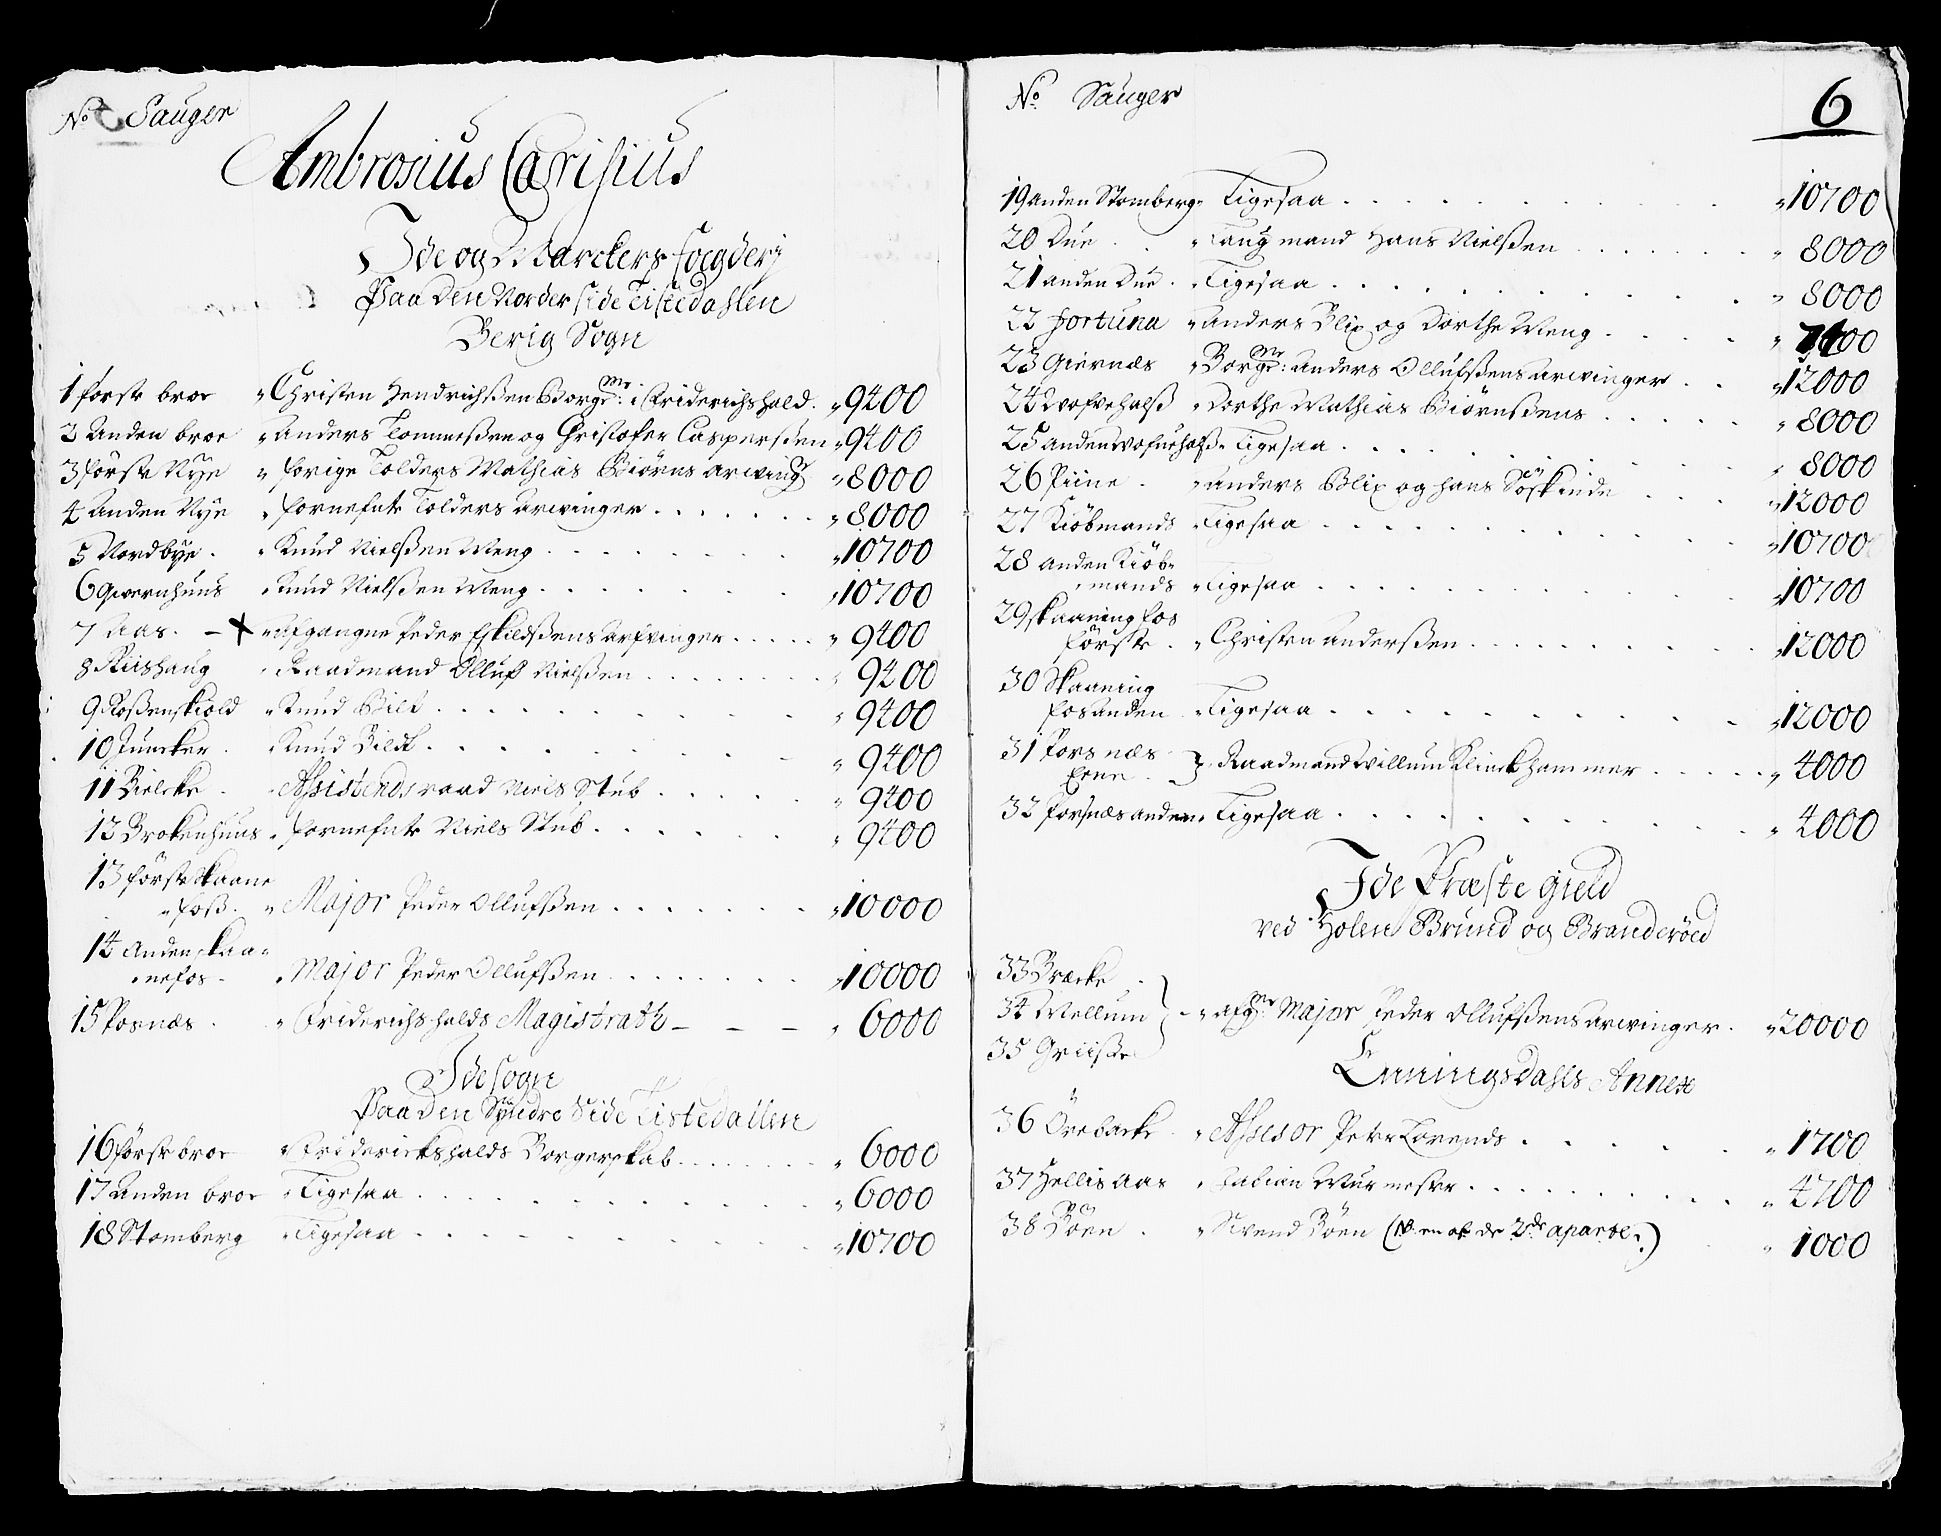 No Sauger
Ambrosius Carisius
Ide og Marckers fogderj
Paa den Norder side Tistedahlen
Berig Sogn
1 første broe " Christen Hendrichßen Borgemr: i Friderichshald . " 9400
2 Anden broe " Anders Tommeßen og Christofer Casperßen " 9400
3 første Nye " forige Tolders Mathias Biørns arwing " 8000
4 Anden Nye " fornefnte Tolders arwinger . . . . . . " 8000
5 Nordbye . " Knud Nielßen Weng . . . . . . " 10700
6 Qwernhuus " Knud Nielßen Weng . . . . . . " 10700
7 Aas . - x " Afgangne Peder Eskildßens Arfvinger . . . . . " 9400
8 Riishaug " Raadmand Olluf Nielßen . . . . . . " 9400
9 Roßenskiold " Knud Bilt . . . . . . " 9400
10 Juncker . " Knud Bildt . . . . . . " 9400
11 Bielcke . " Assistendsraad Niels Stub . . . . . " 9400
12 Brokenhuus " fornefnte Niels Stub . . . . . " 9400
13 første Skaane
" foß . " Major Peder Ollufßen . . . . . . " 10000
14 Anden skaa=
" nefos . " Major Peder Ollufßen . . . . . . " 10000
15 Posnæs . " Friderichshalds Magistrath - - - " 6000
Ide sogn
Paa den Syndre Side Tistedallen
16 første broe " Fridericksholds Borgerskab . . . . . . " 6000
17 Anden broe " Tigesaa . . . . . . " 6000
18 Stomberg " Tigesaa . . . . . . " 10700
No Sauger
6
19 anden Stomberg " Tigesaa . . . . . . " 10700
20 Due . . " Laugmand Hans Nielßen . . . . . . " 8000
21 anden Due . " Tigesaa . . . . . . " 8000
22 fortuna " Anders Blix og Dorthe Weng . . . . "
23 Giernæs " Borgemr: Anders Ollufßens arwinger . . " 12000
24 Wofvehalß " Dorthe Mathias Biørnßens . . . . . " 8000
25 anden wofvehalß " Tigesaa . . . . . . " 8000
26 Piine . " Anders Blix og hans Søskende . . . . " 12000
27 Kiøbmands " Tigesaa . . . . . . " 10700
28 anden Kiøb=
" mands " Tigesaa . . . . . . " 10700
29 skaaningfos
første . " Christen Anderßen . . . . . . " 12000
30 Skaaning
fos anden . " Tigesaa . . . . . . " 12000
31 Porsnæs
Eene . } " Raadmand Willum Klinckhammer . . . . . " 4000
32 porsnæs anden " Tigesaa . . . . . . " 4000
Ide Præste gield
ved Holen Brund og Branderöed
33 Bræcke .
34 Mellum } - " afgne: Major Peder Ollufßens arwinger . " 20000
35 Griißle
Enningsdahls Annex
36 Örebæcke . " Assesor Peter Lorends . . . . . " 1700
37 Hellis Aas " Fabian Wurmester . . . . . . " 4700
38 Böen . " Swend Böen (NB en af de 2de aparte.) " 1000